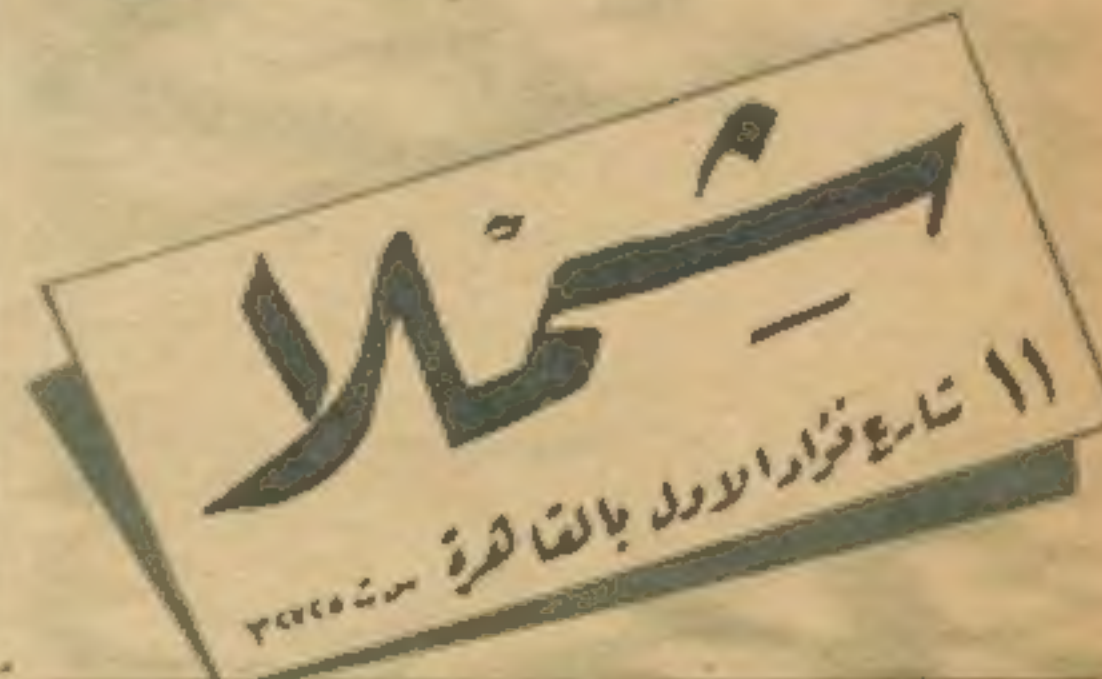 شملا
١١ شارع فؤاد الاول بالقاهرة س ت